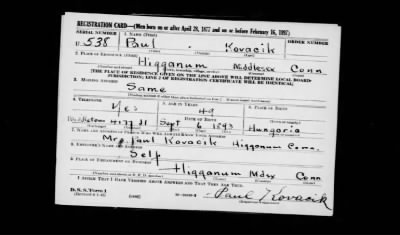 REGISTRATION CARD—(Men born on or after April 28, 1877 and on or before February 16, 1897)
SERIAL NUMBER 1. NAME (Print) ORDER NUMBER
U 538 Paul Kovacik
2. PLACE OF RESIDENCE (Print)
Higganum Middlesex Conn
(Number and street) (Town, township, village, or city) (County) (State)
[THE PLACE OF RESIDENCE GIVEN ON THE LINE ABOVE WILL DETERMINE LOCAL BOARD
JURISDICTION; LINE 2 OF REGISTRATION CERTIFICATE WILL BE IDENTICAL]
3. MAILING ADDRESS
Same
4. TELEPHONE 5. AGE IN YEARS 6. PLACE OF BIRTH
Yes 49
DATE OF BIRTH
Sept 6 1893 Hungaria
7. NAME AND ADDRESS OF PERSON WHO WILL ALWAYS KNOW YOUR ADDRESS
Mrs. Paul Kovacik Higganum Conn.
8. EMPLOYER'S NAME AND ADDRESS
Self
9. PLACE OF EMPLOYMENT OR BUSINESS
Higganum Mdsx Conn
(Number and street or R. F. D. number) (Town) (County) (State)
I AFFIRM THAT I HAVE VERIFIED ABOVE ANSWERS AND THAT THEY ARE TRUE.
D. S. S. Form 1
Paul Kovacik
(Registrant's signature)